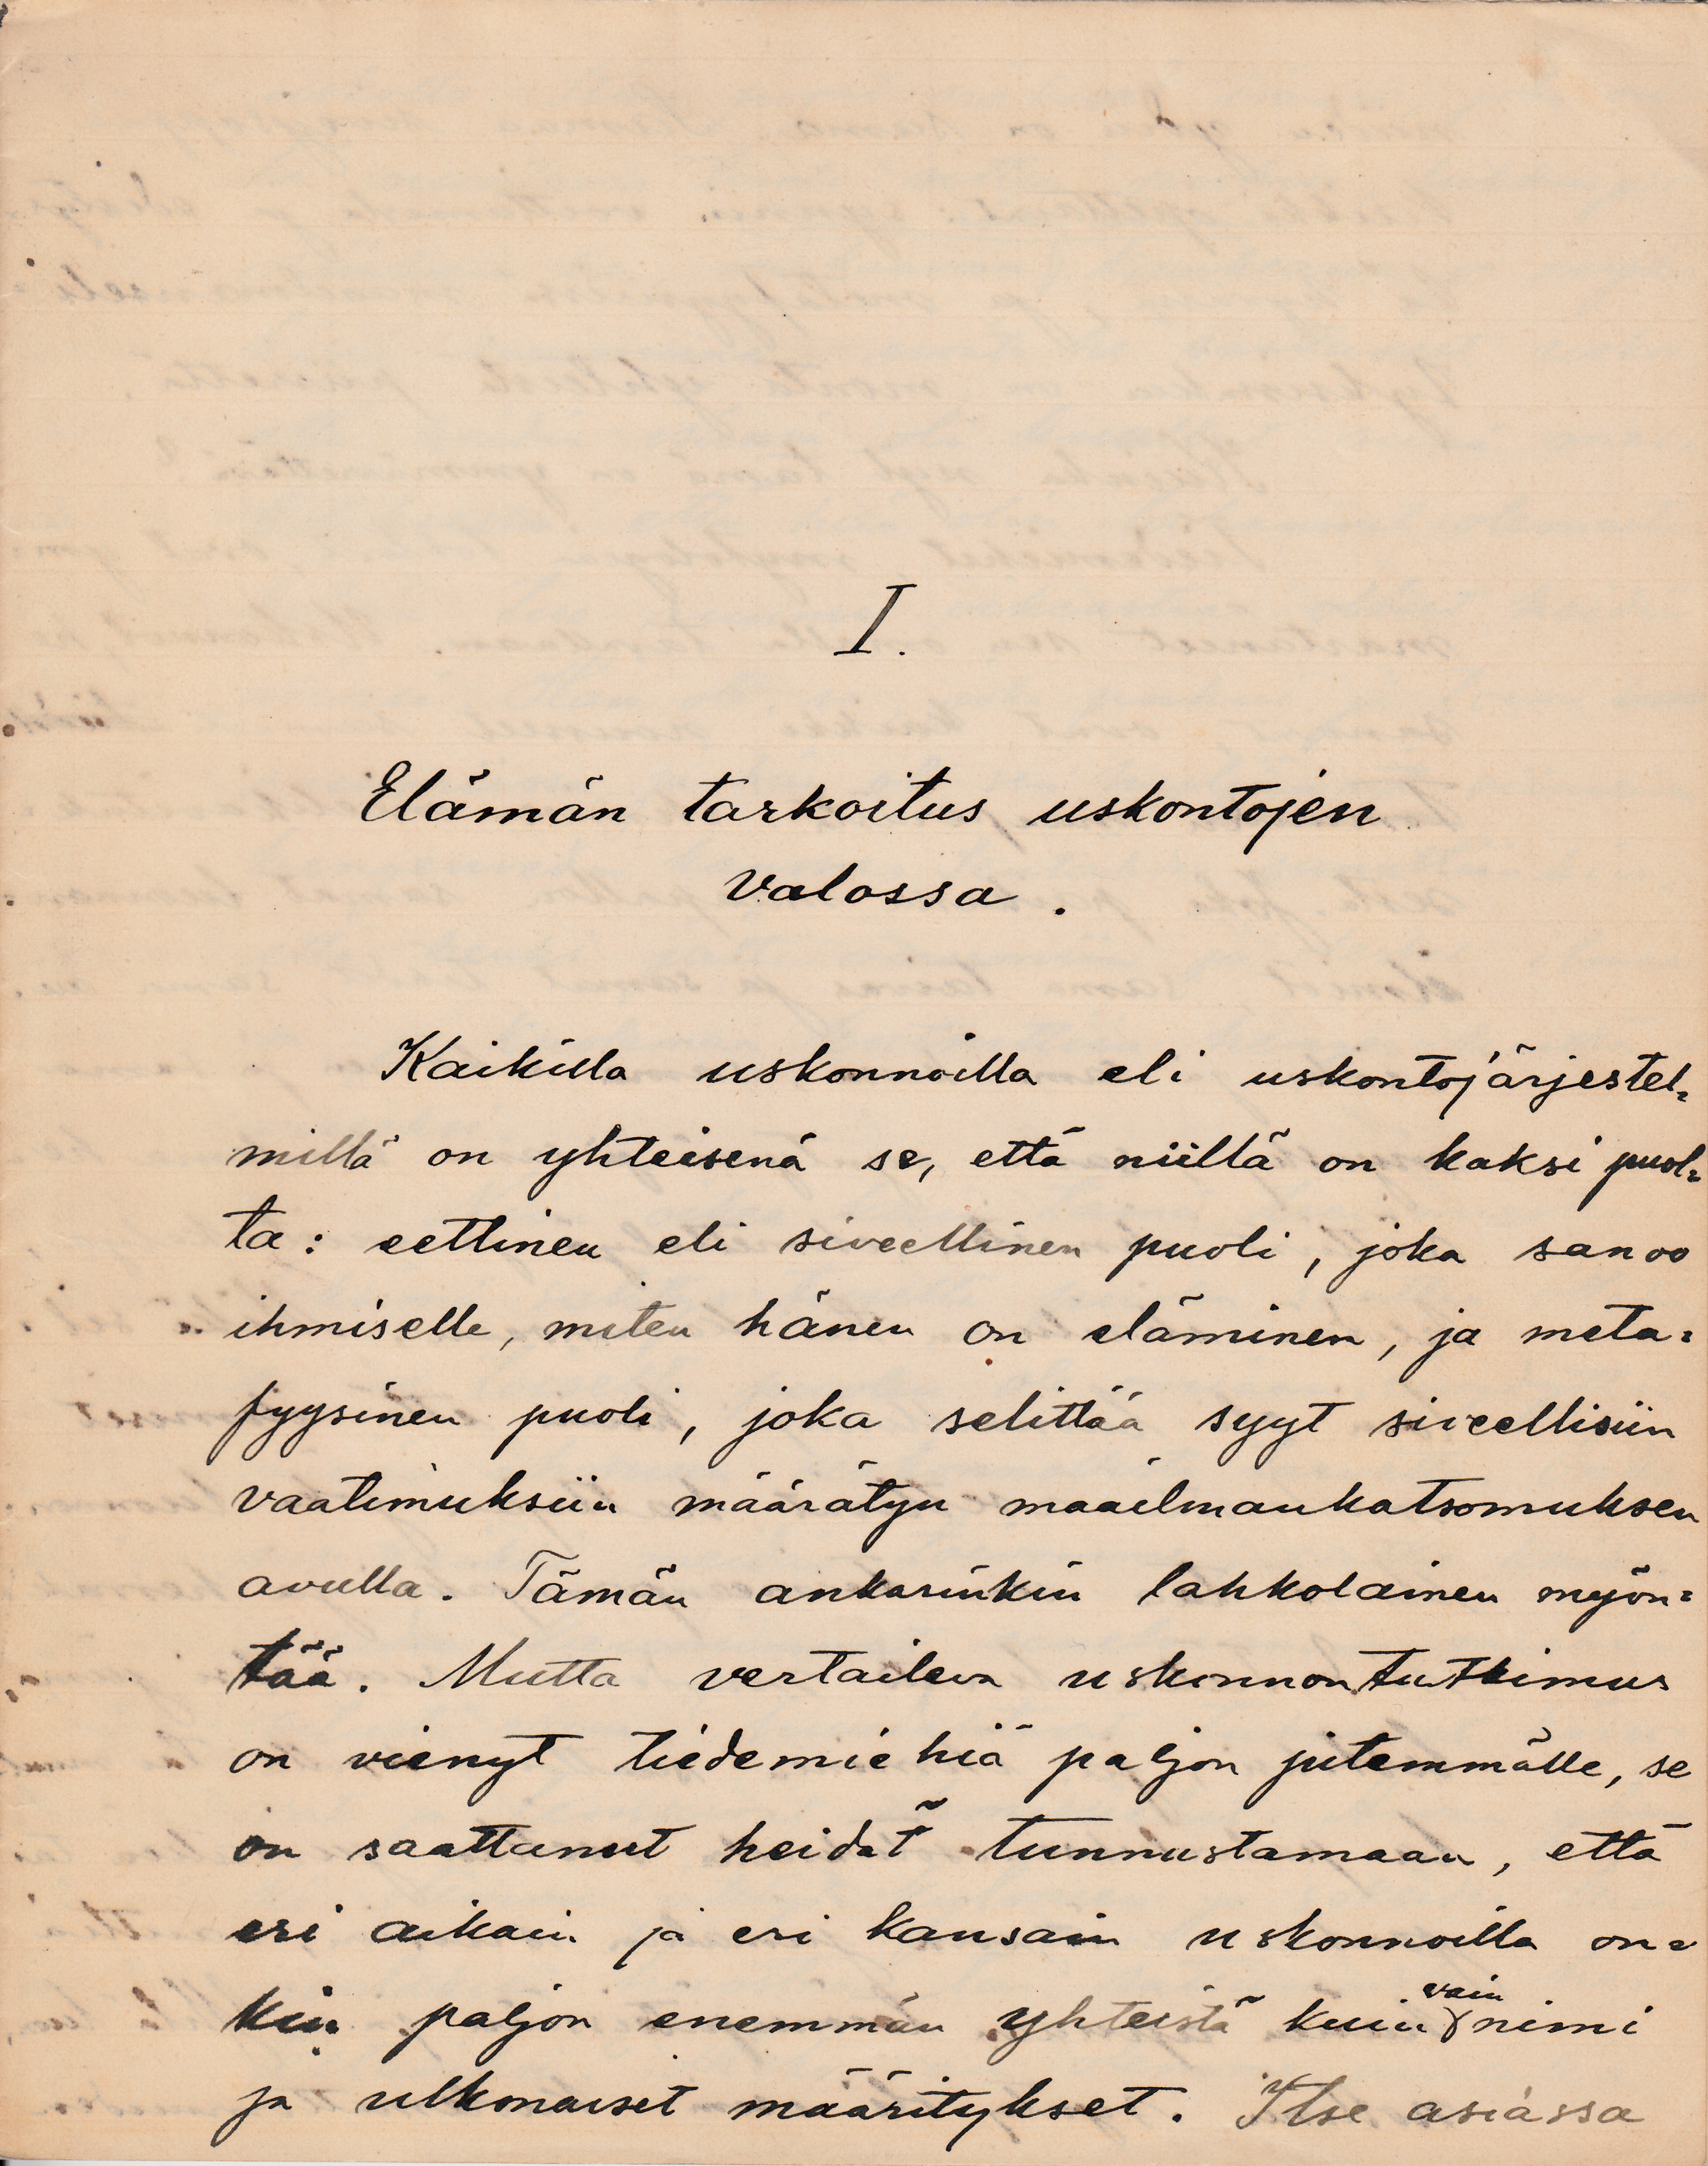 I.
Elämän tarkoitus uskontojen
valossa.
Kaikilla uskonnoilla eli uskontojärjestel=
millä on yhteisenä se, että niillä on kaksi puol=
ta: eettinen eli siveellinen puoli, joka sanoo
ihmiselle, miten hänen on eläminen, ja meta=
fyysinen puoli, joka selittää syyt siveellisiin
vaatimuksiin määrätyn maailmankatsomuksen
avulla. Tämän ankarinkin lahkolainen myön=
tää. Mutta vertaileva uskonnontutkimus
on vienyt tiedemiehiä paljon pitemmälle, se
on saattanut heidät tunnustamaan, että
eri aikain ja eri kansain uskonnoilla on=
kin paljon enemmän yhteistä kuin vain nimi
ja ulkonaiset määritykset. Itse asiassa